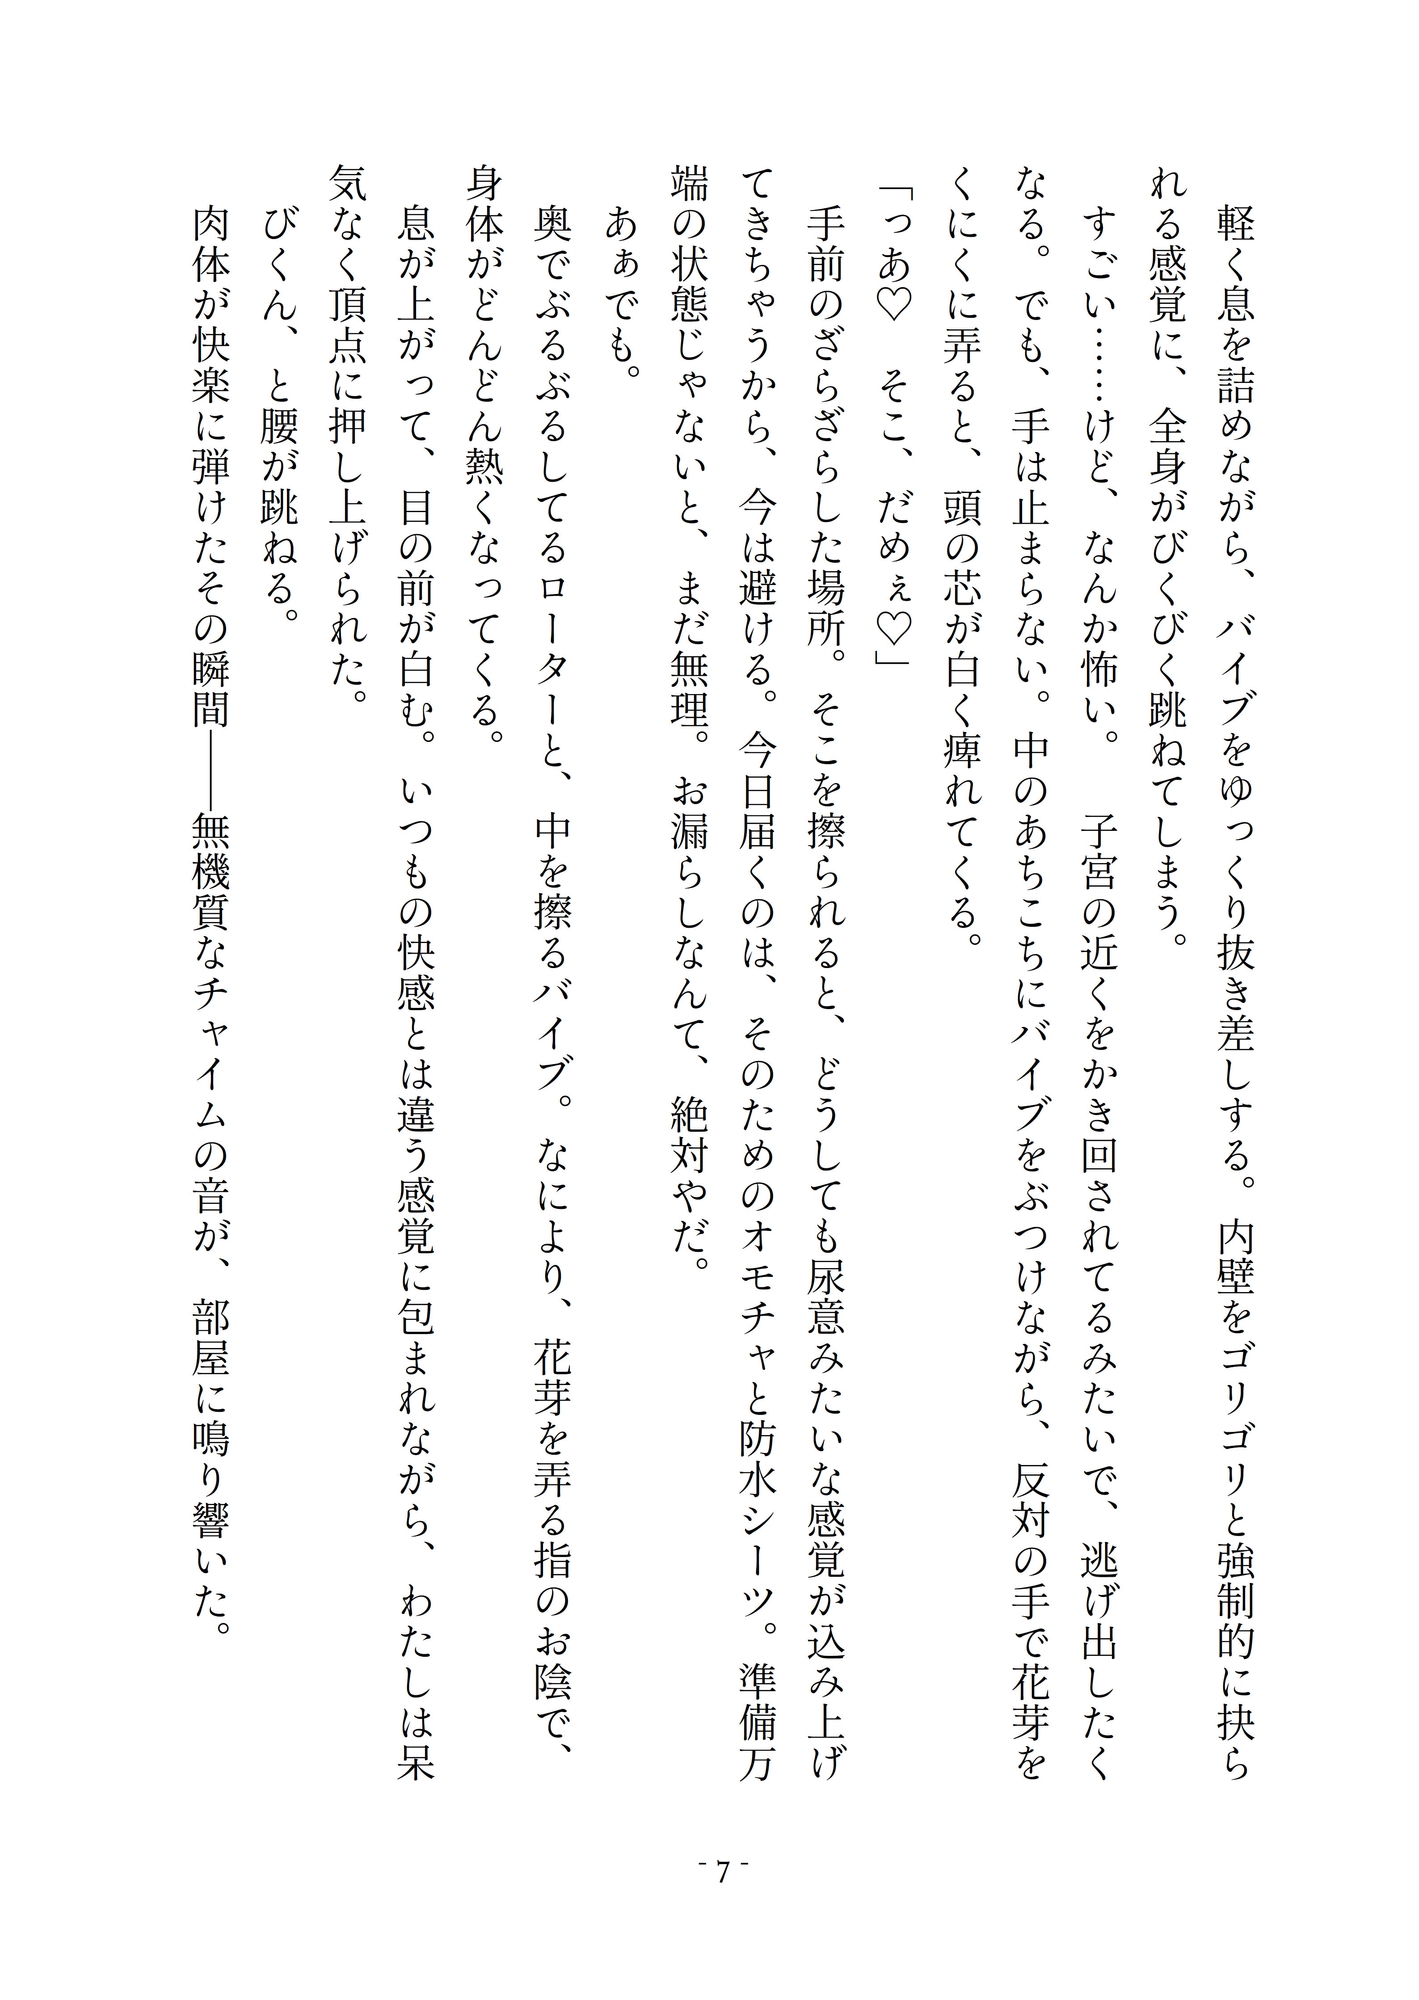 軽く息を詰めながら、バイブをゆっくり抜き差しする。内壁をゴリゴリと強制的に抉ら
れる感覚に、全身がびくびく跳ねてしまう。
すごい……けど、なんか怖い。　子宮の近くをかき回されてるみたいで、逃げ出したく
なる。でも、手は止まらない。中のあちこちにバイブをぶつけながら、反対の手で花芽を
くにくに弄ると、頭の芯が白く痺れてくる。
「っあ♡　そこ、だめぇ♡」
手前のざらざらした場所。そこを擦られると、どうしても尿意みたいな感覚が込み上げ
てきちゃうから、今は避ける。今日届くのは、そのためのオモチャと防水シーツ。準備万
端の状態じゃないと、まだ無理。お漏らしなんて、絶対やだ。
あぁでも。
奥でぶるぶるしてるローターと、中を擦るバイブ。なにより、花芽を弄る指のお陰で、
身体がどんどん熱くなってくる。
息が上がって、目の前が白む。いつもの快感とは違う感覚に包まれながら、わたしは呆
気なく頂点に押し上げられた。
びくん、と腰が跳ねる。
肉体が快楽に弾けたその瞬間――無機質なチャイムの音が、部屋に鳴り響いた。
- 7 -